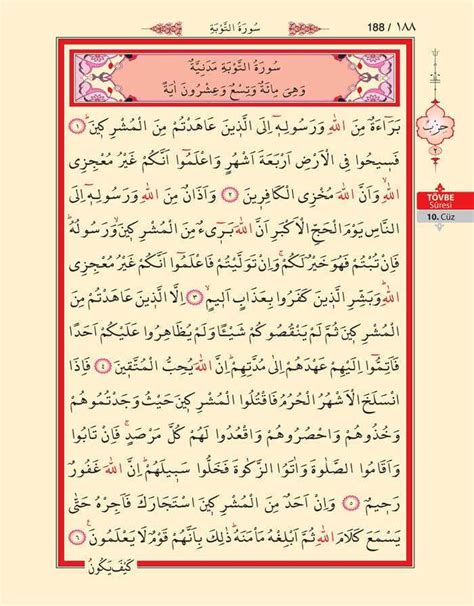 سُورَةُ التَّوْبَةِ
188 / ١٨٨
سُورَةُ التَّوْبَةِ مَدَنِيَّةٌ
وَهِيَ مِائَةٌ وَتِسْعٌ وَعِشْرُونَ اٰيَةً
بَرَٓاءَةٌ مِنَ اللّٰهِ وَرَسُولِه۪ٓ اِلَى الَّذ۪ينَ عَاهَدْتُمْ مِنَ الْمُشْرِك۪ينَۜ ﴿١﴾
فَس۪يحُوا فِي الْاَرْضِ اَرْبَعَةَ اَشْهُرٍ وَاعْلَمُٓوا اَنَّكُمْ غَيْرُ مُعْجِزِي
اللّٰهِۙ وَاَنَّ اللّٰهَ مُخْزِي الْكَافِر۪ينَ ﴿٢﴾ وَاَذَانٌ مِنَ اللّٰهِ وَرَسُولِه۪ٓ اِلَى
النَّاسِ يَوْمَ الْحَجِّ الْاَكْبَرِ اَنَّ اللّٰهَ بَر۪ٓيءٌ مِنَ الْمُشْرِك۪ينَۙ وَرَسُولُهُۜ
فَاِنْ تُبْتُمْ فَهُوَ خَيْرٌ لَكُمْۚ وَاِنْ تَوَلَّيْتُمْ فَاعْلَمُٓوا اَنَّكُمْ غَيْرُ مُعْجِزِي
اللّٰهِۜ وَبَشِّرِ الَّذ۪ينَ كَفَرُوا بِعَذَابٍ اَل۪يمٍۙ ﴿٣﴾ اِلَّا الَّذ۪ينَ عَاهَدْتُمْ مِنَ
الْمُشْرِك۪ينَ ثُمَّ لَمْ يَنْقُصُوكُمْ شَيْـٔاً وَلَمْ يُظَاهِرُوا عَلَيْكُمْ اَحَداً
فَاَتِمُّٓوا اِلَيْهِمْ عَهْدَهُمْ اِلٰى مُدَّتِهِمْۜ اِنَّ اللّٰهَ يُحِبُّ الْمُتَّق۪ينَ ﴿٤﴾ فَاِذَا
انْسَلَخَ الْاَشْهُرُ الْحُرُمُ فَاقْتُلُوا الْمُشْرِك۪ينَ حَيْثُ وَجَدْتُمُوهُمْ
وَخُذُوهُمْ وَاحْصُرُوهُمْ وَاقْعُدُوا لَهُمْ كُلَّ مَرْصَدٍۚ فَاِنْ تَابُوا
وَاَقَامُوا الصَّلٰوةَ وَاٰتَوُا الزَّكٰوةَ فَخَلُّوا سَب۪يلَهُمْۜ اِنَّ اللّٰهَ غَفُورٌ
رَح۪يمٌ ﴿٥﴾ وَاِنْ اَحَدٌ مِنَ الْمُشْرِك۪ينَ اسْتَجَارَكَ فَاَجِرْهُ حَتّٰى
يَسْمَعَ كَلَامَ اللّٰهِ ثُمَّ اَبْلِغْهُ مَأْمَنَهُۜ ذٰلِكَ بِاَنَّهُمْ قَوْمٌ لَا يَعْلَمُونَ۟ ﴿٦﴾
كَيْفَ يَكُونُ
حزب
٢
TÖVBE
Sûresi
10. Cüz